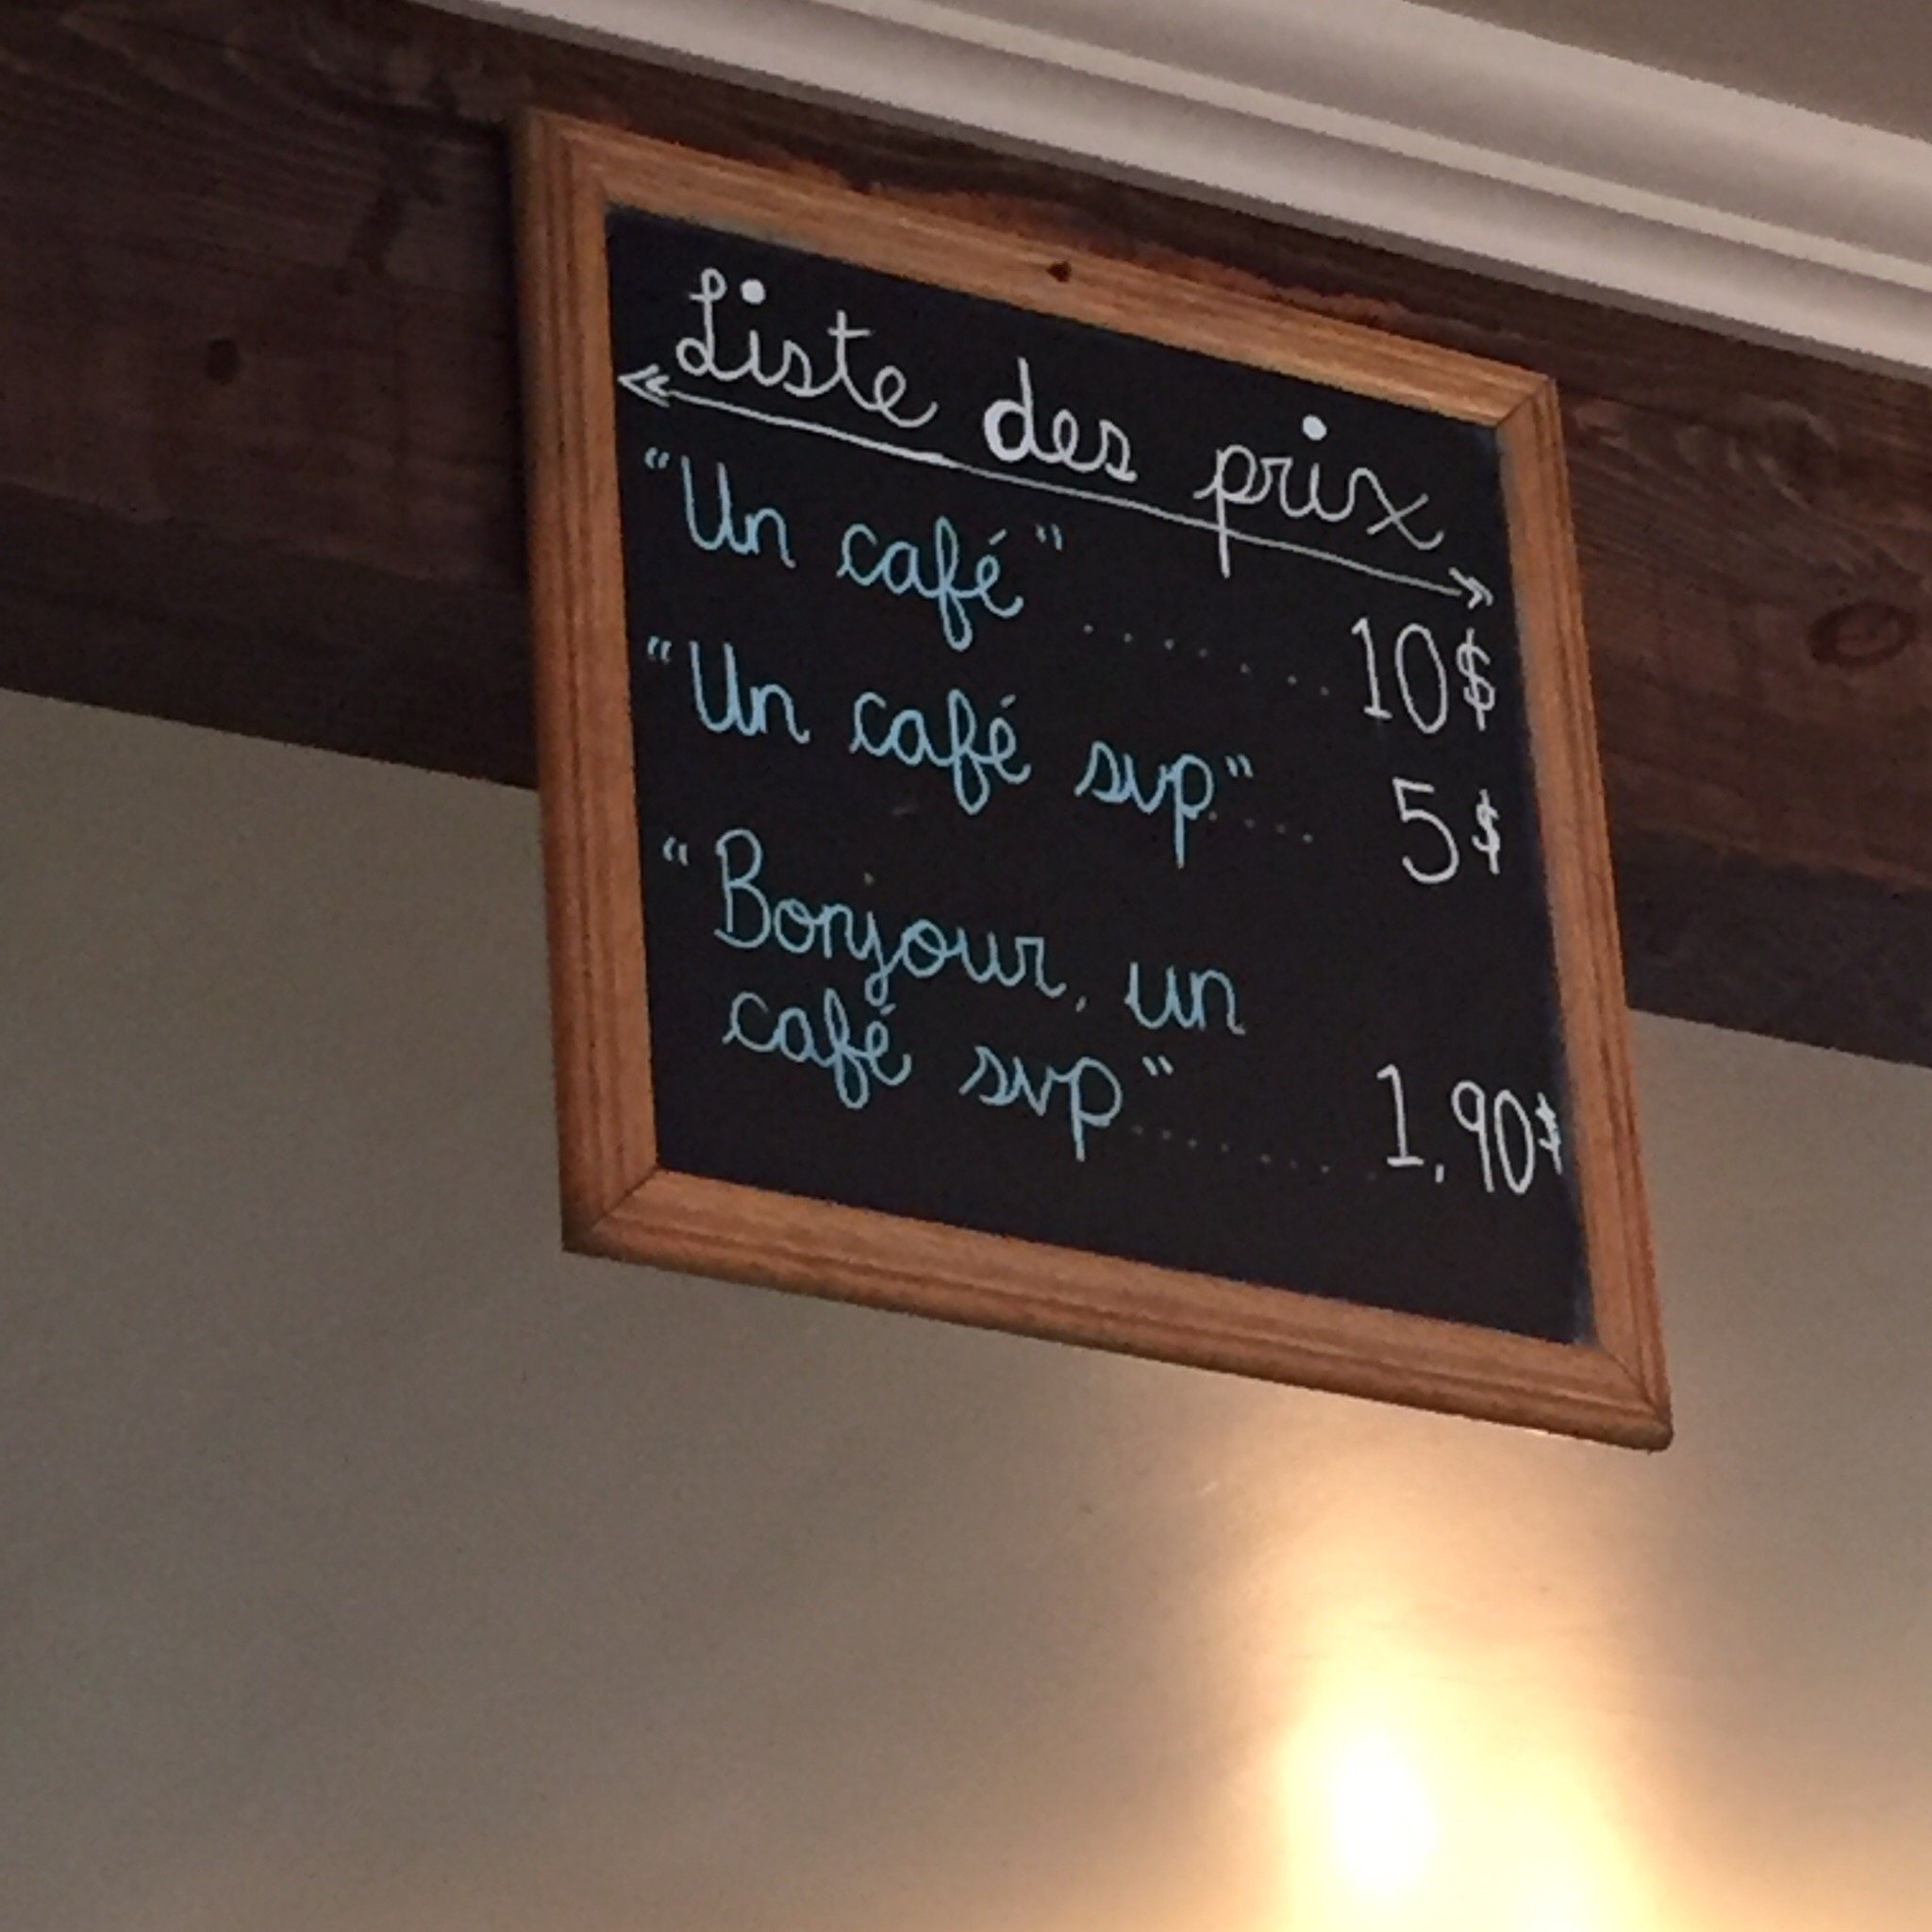 Liste des prix
"Un café" ....... 10$
"Un café svp" .... 5$
"Bonjour, un
café svp" ...... 1,90$